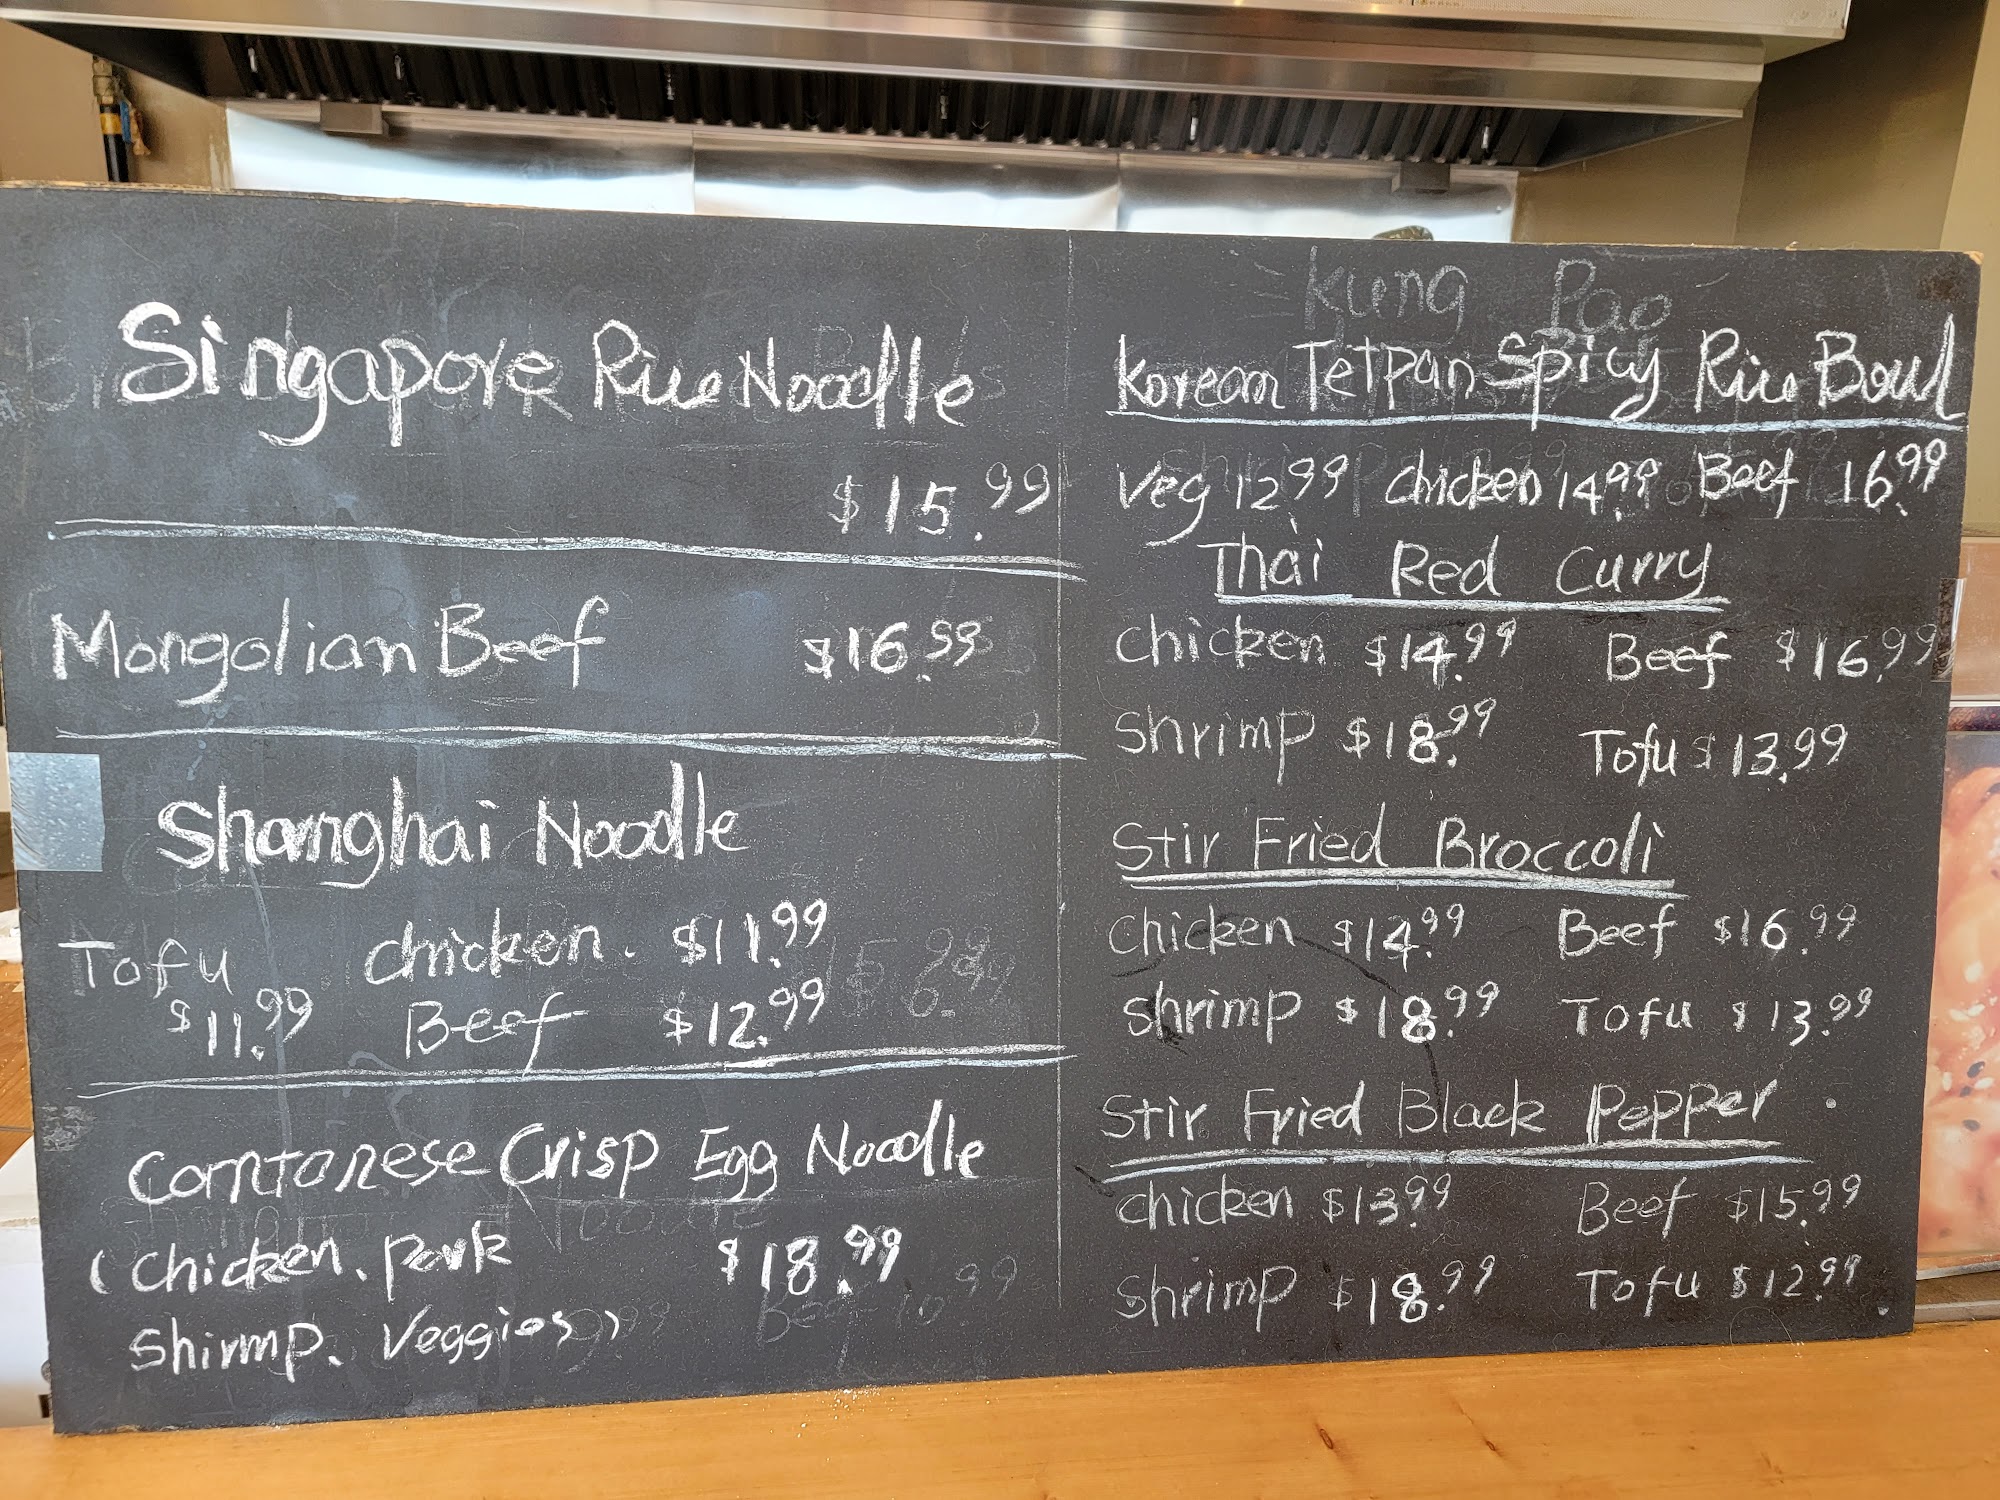 Singapore Rice Noodle
$15.99
Mongolian Beef $16.99
Shanghai Noodle
Tofu chicken. $11.99
$11.99 Beef $12.99
Cantonese Crisp Egg Noodle
(Chicken. Pork $18.99
Shirmp. Veggies)
Kung Pao
Korean Tetpan Spicy Rice Bowl
Veg 12.99 chicken 14.99 Beef 16.99
Thai Red Curry
chicken $14.99 Beef $16.99
Shrimp $18.99 Tofu $13.99
Stir Fried Broccoli
chicken $14.99 Beef $16.99
Shrimp $18.99 Tofu $13.99
Stir Fried Black Pepper.
chicken $13.99 Beef $15.99
Shrimp $18.99 Tofu $12.99.